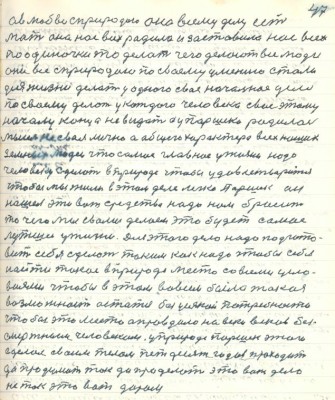 47
а в любви с природою она всему делу есть
мать она нас всех родила и заставила нас всех
по одиночки это делат чего делают все люди
они все с природою по своему умению стали
для жизни делат у одного свое начальное дело
по своему делат у каждого человека свое этому
началу конца не видат а у паршека родилас
мысл не своя лично а общего характера всех наших
земных людей что самое главное у жизни надо
человеку сделат в природе чтобы удовлетворится
чтобы мы жили в этом деле легко Паршек он
нашел это вот средство надо нам бросит
то чего мы с вами делаем это будет самое
лутшее у жизни. Для этого дела надо подгото-
вит себя сделат таким как надо чтобы себе
найти такое в природе место со всеми усло-
виями чтобы в этом вовсем была такая
возможност остатся без всякой потребности
чтобы это место оправдало на веки веков бес-
смертным человеком. у природе паршек этого
сделал своим телом петдесят годов проходит
да продумат так да проделат это вот дело
не так это вот даром